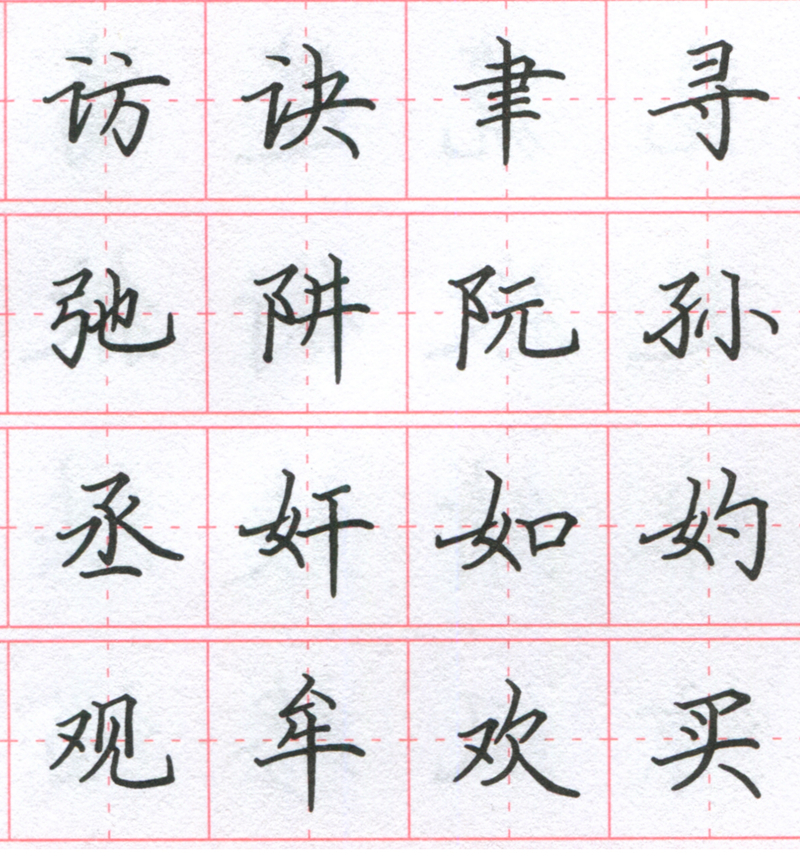 访诀聿寻
弛阱阮孙
丞奸如妁
观牟欢买